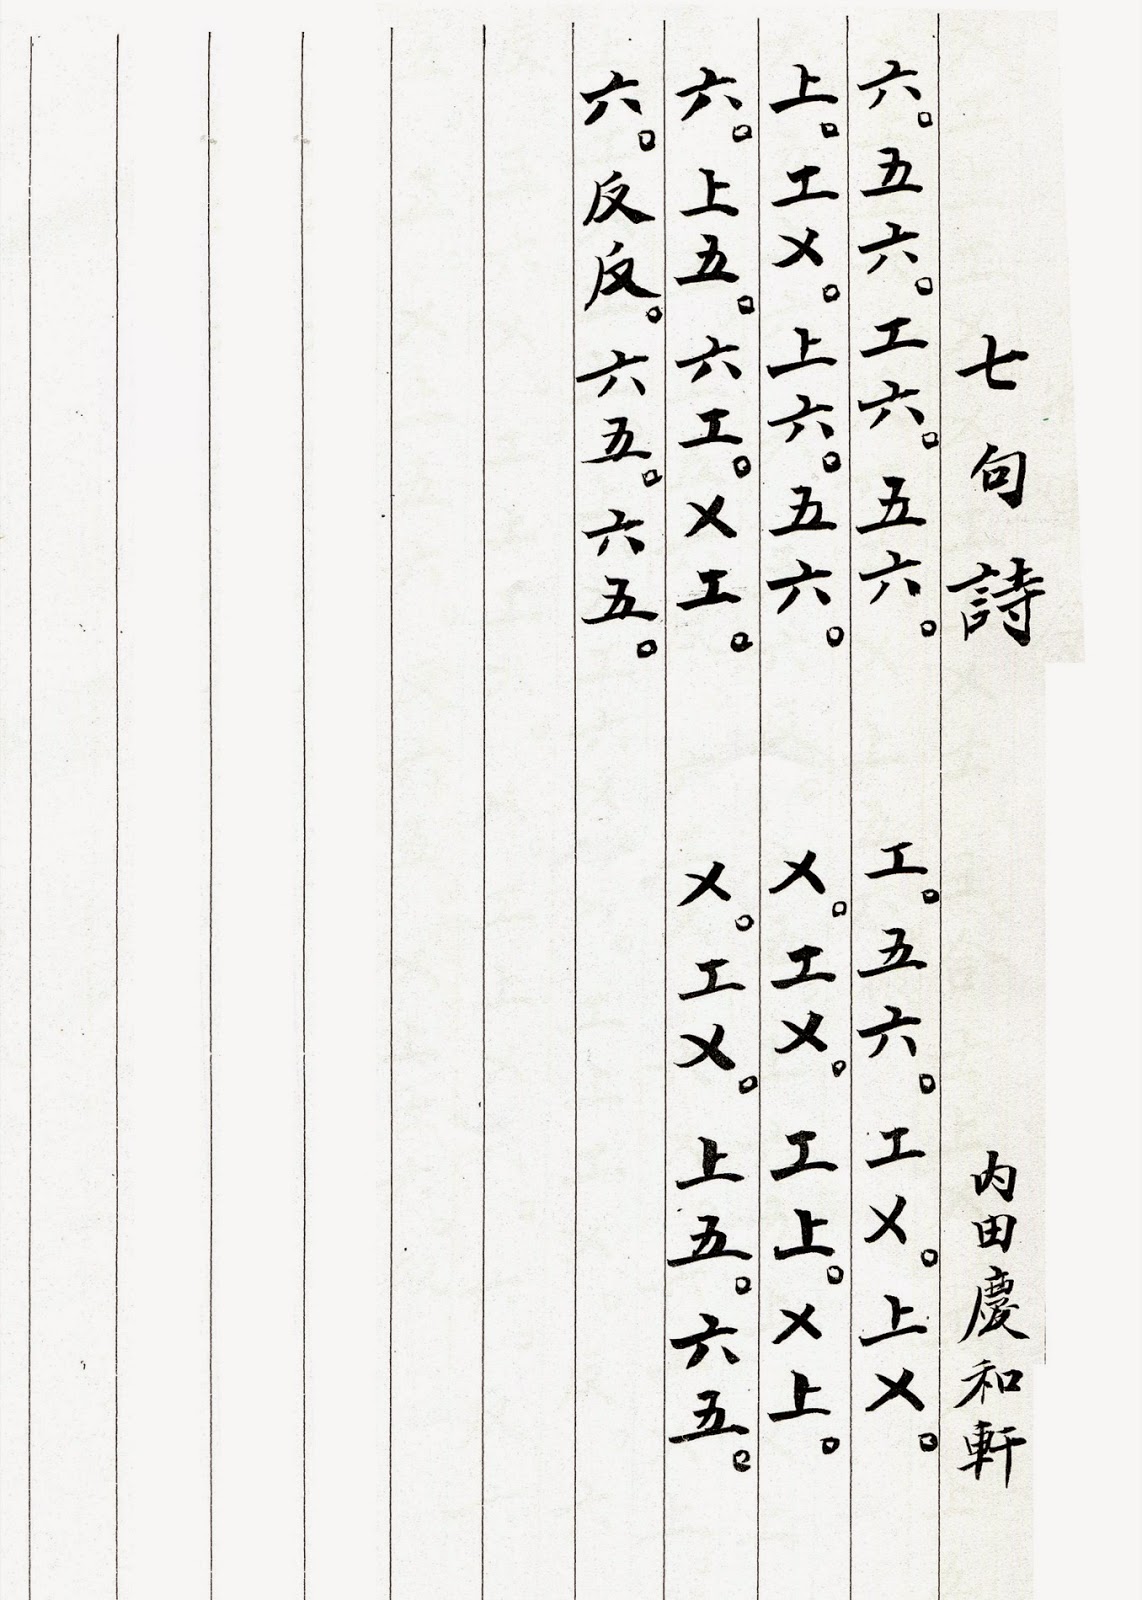 七句詩 内田慶和軒
六。五六。工六。五六。 工。五六。工乂。上乂。
上。工乂。上六。五六。 乂。工乂。工上。乂上。
六。上五。六工。乂工。 乂。工乂。上五。六五。
六。反反。六五。六五。